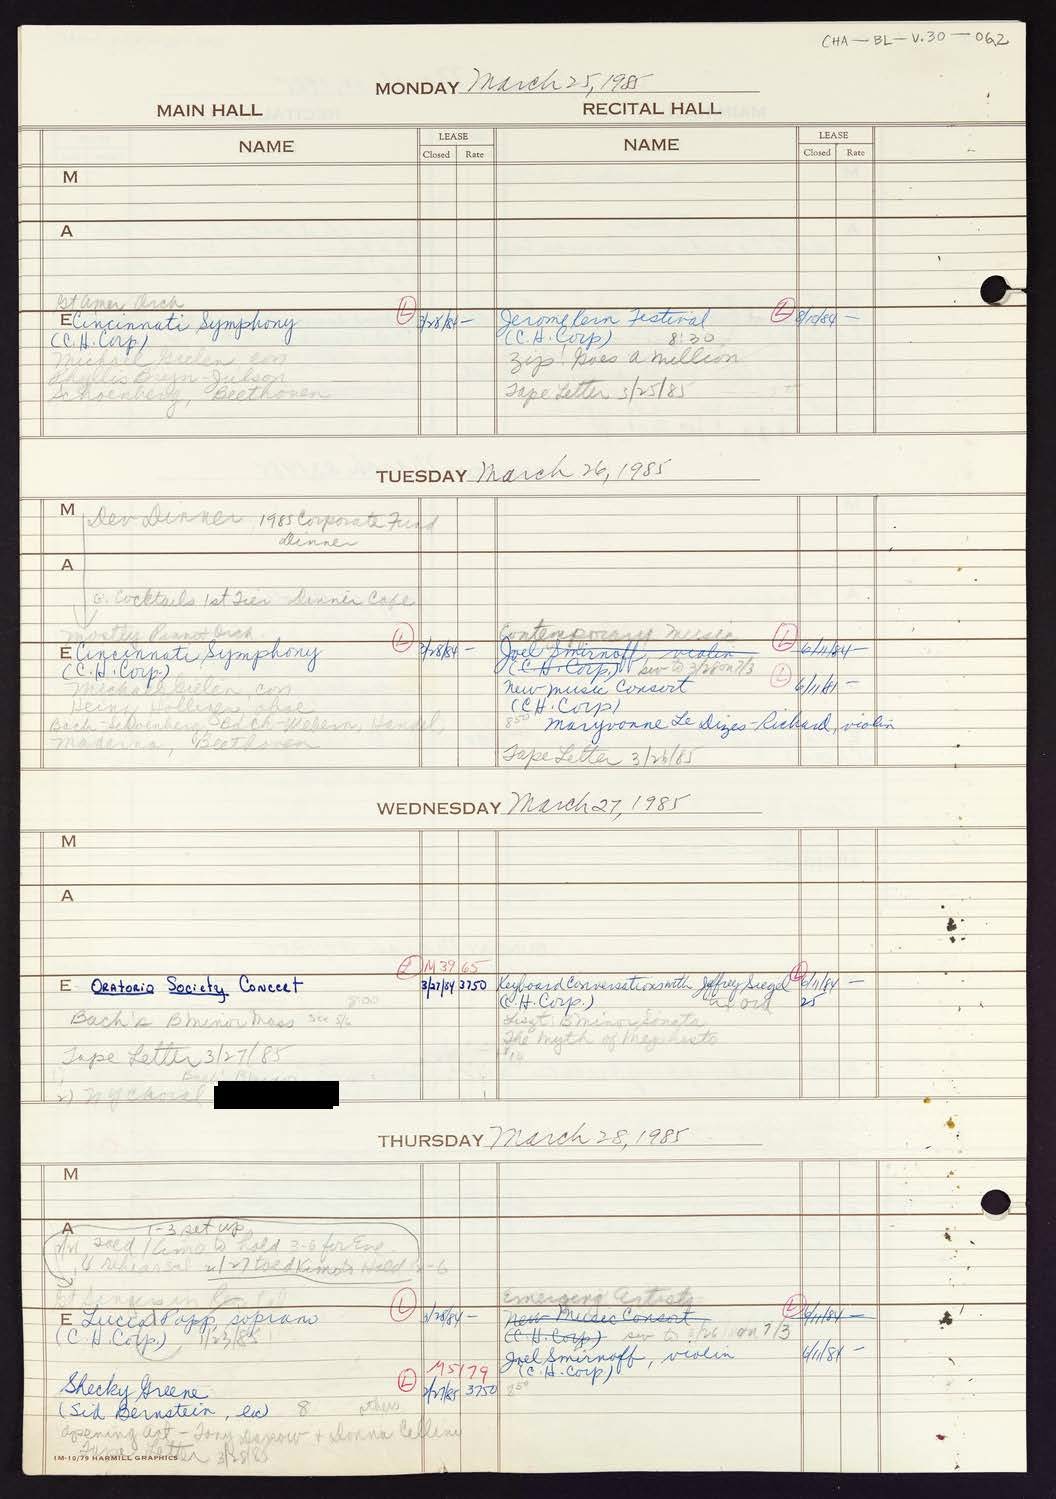 CHA-BL-V.30-062
MONDAY March 25, 1985
MAIN HALL
RECITAL HALL
NAME
LEASE
Closed Rate
NAME
LEASE
Closed Rate
M
A
Gt Amer Orch
E Cincinnati Symphony L 3/28/84 —
(C.H. Corp)
Michael Gielen, con
Phyllis Bryn-Julson
Schoenberg, Beethoven
Jerome Kern Festival L 8/10/84 —
(C.H. Corp) 8:30
Zip! Goes a Million
Tape Letter 3/25/85
TUESDAY March 26, 1985
M Dev Dinner 1985 Corporate Fund
dinner
A
6. Cocktails 1st Tier - Dinner Cafe
Mostly Orch.
E Cincinnati Symphony L 3/28/84 —
(C.H. Corp)
Michael Gielen, con
Heinz Holliger, oboe
Bach-Schoenberg, Bach-Webern, Handel
Maderna, Beethoven
Contemporary Music
Joel Smirnoff, violin L 6/11/84 —
(C.H. Corp) sw to 3/28 on 7/3
New Music Consort L 6/11/84 —
(C.H. Corp)
Maryvonne Le Dizes-Richard, violin
Tape Letter 3/26/85
WEDNESDAY March 27, 1985
M
A
M3965
E Oratorio Society Concert L 3/27/84 3750
8:00
Bach's B minor Mass see 5/6
Tape Letter 3/27/85
2) NY Choral
Keyboard Conversations with Jeffrey Siegel L 6/11/84 —
(C.H. Corp.) 25
Liszt: B Minor Sonata
The Myth of Mephisto
THURSDAY March 28, 1985
M
A 1-3 set up
told Kimo to hold 3-6 for Eve.
rehearsal 2/27 told Kimo to Hold 2-6
Gt Singers in
E Lucia Popp, soprano L 3/28/84 —
(C.H. Corp.) 1/23/85
M5179
Shecky Greene L 2/27/85 3750
(Sid Bernstein, ) 8
opening act - Tony Darrow + Donna Cellini
Tape Letter 3/28/85
Emerging Artists
New Music Consort L 6/11/84 —
(C.H. Corp) sw to 3/26 on 7/3
Joel Smirnoff, violin 6/11/84 —
(C.H. Corp)
1M-10/79 HARMILL GRAPHICS